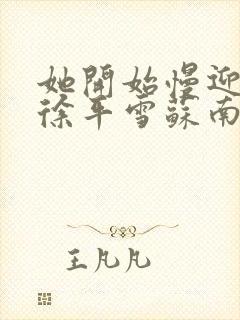 她開始慢迎
徐平雪蘇南
王凡凡